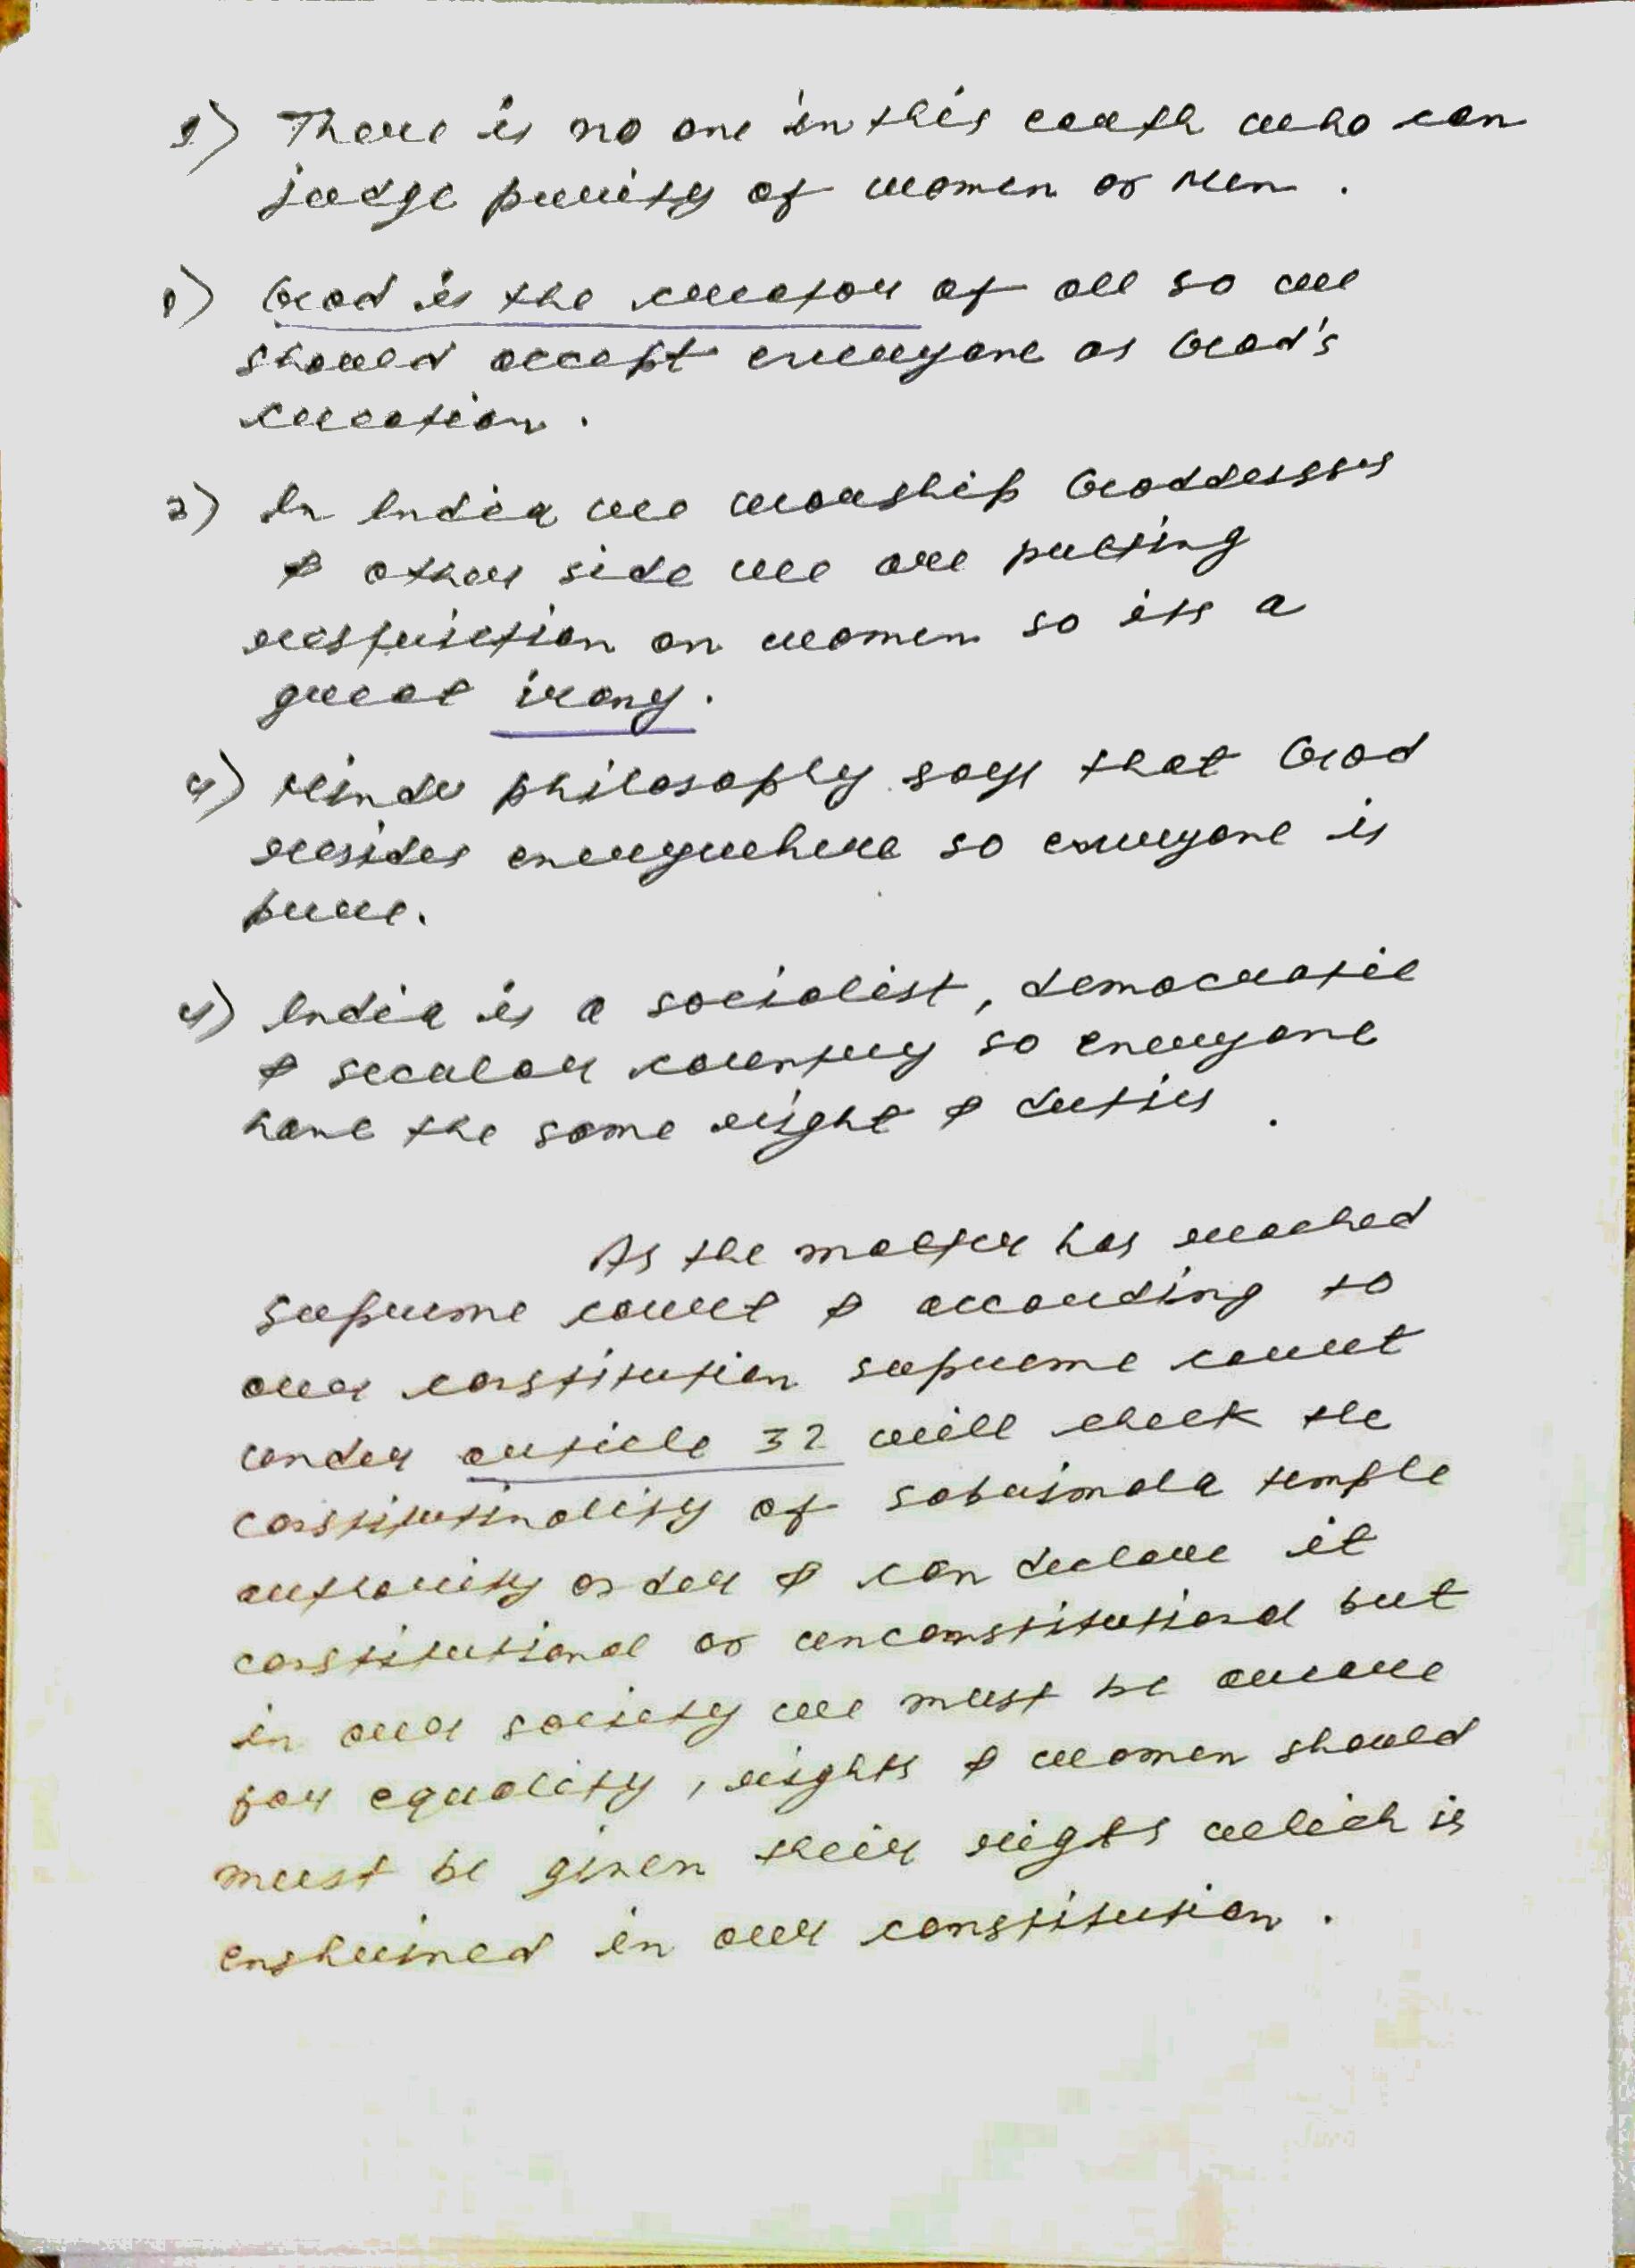 1) There is no one in this earth who can
judge purity of women or Men.
1) God is the creator of all so we
should accept everyone as God's
creation.
3) In India we worship Goddessses
& other side we are putting
restriction on women so its a
great irony.
4) Hindu philosophy says that God
resides everywhere so everyone is
pure.
4) India is a socialist, democratic
& secular country so everyone
have the same right & duties.
As the matter has reached
Supreme court & according to
our constitution supreme court
under article 32 will check the
constitutinality of sabrimala temple
authority order & can declare it
constitutional or unconstitutional but
in our society we must be aware
for equality, rights & women should
must be given their rights which is
enshrined in our constitution.